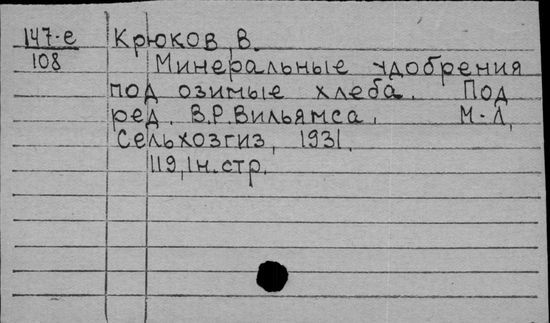 147-е Крюков, В.
108 Минеральные удобрения
под озимые хлеба. Под
ред. В.Р.Вильямса. М-Л,
Сельхозгиз, 1931.
119,1н.стр.